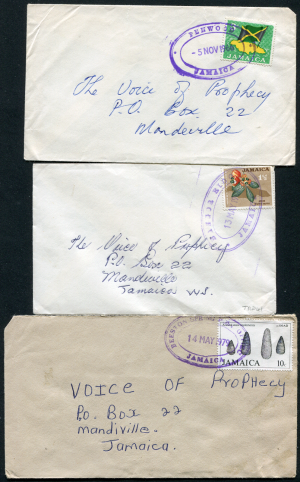 PENWOOD
- 5 NOV 19
JAMAICA
JAMAICA
The Voice of Prophecy
P.O. Box 22
Mandeville
JAMAICA
The Voice of Prophecy
P.O. Box 22
Mandeville
Jamaica W.I.
14 MAY 1970
JAMAICA
JAMAICA 10c
VOICE OF PROPHECY
P.o. Box 22
mandiville.
Jamaica.